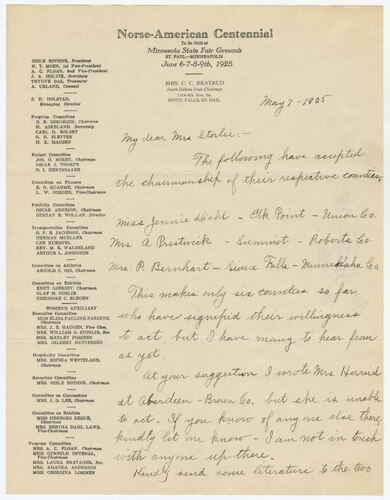 Norse-American Centennial
To Be Held at
Minnesota State Fair Grounds
ST. PAUL—MINNEAPOLIS
June 6-7-8-9th, 1925
GISLE BOTHNE, President
N. T. MOEN, 1st Vice-President
A. C. FLOAN, 2nd Vice-President
J. A. HOLVIK, Secretary
TRYGVE OAS, Treasurer
A. UELAND, Counsel
S. H. HOLSTAD,
Managing Director
MRS. C. C. BRATRUD
South Dakota State Chairman
SIOUX FALLS, SO. DAK.
May 7 - 1925
My dear Mrs Storlie:-
The following have accepted
the chairmanship of their respective counties,
Miss Jennie Dahl - Elk Point - Union Co.
Mrs. A Prestwick - Summit - Roberts Co.
Mrs. P. Bernhart - Sioux Falls - Minnehaha Co
This makes only six counties so far
who have signified their willingness
to act, but I have many to hear from
as yet.
At your suggestion I wrote Mrs Herried
at Aberdeen - Brown Co, but she is unable
to act. If you know of anyone else there,
kindly let me know - I am not in touch
with anyone up there.
Kindly send some literature to the two
Program Committee
B. E. BERGESEN, Chairman
H. ASKELAND, Secretary
CARL G. O. HANSEN
Budget Committee
JOS. G. NORBY, Chairman
OSCAR J. THORPE
G. I. HERTSGAARD
Committee on Finance
H. G. QUAMME, Chairman
Publicity Committee
OSCAR ARNESON, Chairman
GUSTAV B. WOLLAN, Director
Transportation Committee
O. P. B. JACOBSON, Chairman
HERMAN MUELLER
LEE KUEMPEL
REV. M. E. WALDELAND
ARTHUR L. JOHNSTON
Committee on Athletics
ARNOLD C. OSS, Chairman
Committee on Exhibits
KNUT GJERSET, Chairman
OLAF M. NORLIE
THEODORE C. BLEGEN
WOMEN'S AUXILIARY
Executive Committee
MISS ELISA PAULINE FARSETH, Chairman
MRS. J. E. HAUGEN, Vice Chm.
MRS. WILLIAM O. STORLIE, Sec
MRS. MANLEY FOSSEEN
MRS. GILBERT GUTTERSEN
Hospitality Committee
Chairman
Reception Committee
MRS. GISLE BOTHNE, Chairman
Committee on Concessions
MRS. J. O. LEE, Chairman
Committee on Exhibit
MISS HERBORG REQUE, Chairman
MRS. BERTHA DAHL LAWS, Vice-Chairman
Program Committee
MRS. A. C. FLOAN, Chairman
MRS. AMANDA ANDERSON